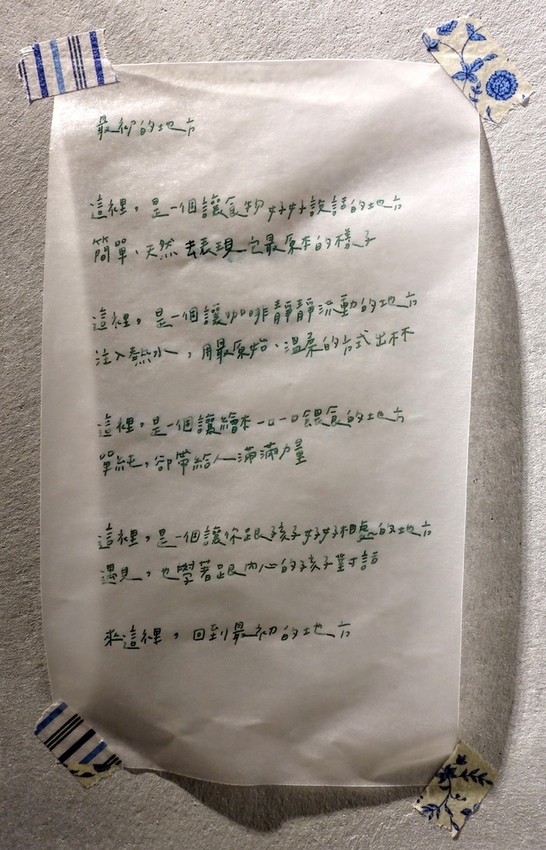 最初的地方
這裡，是一個讓食物好好說話的地方
簡單、天然去表現它最原本的樣子
這裡，是一個讓咖啡靜靜流動的地方
注入熱水，用最原始、溫柔的方式出杯
這裡，是一個讓繪本一口一口餵食的地方
單純，卻帶給人滿滿力量
這裡，是一個讓你跟孩子好好相處的地方
遇見，也學著跟內心的孩子對話
來這裡，回到最初的地方